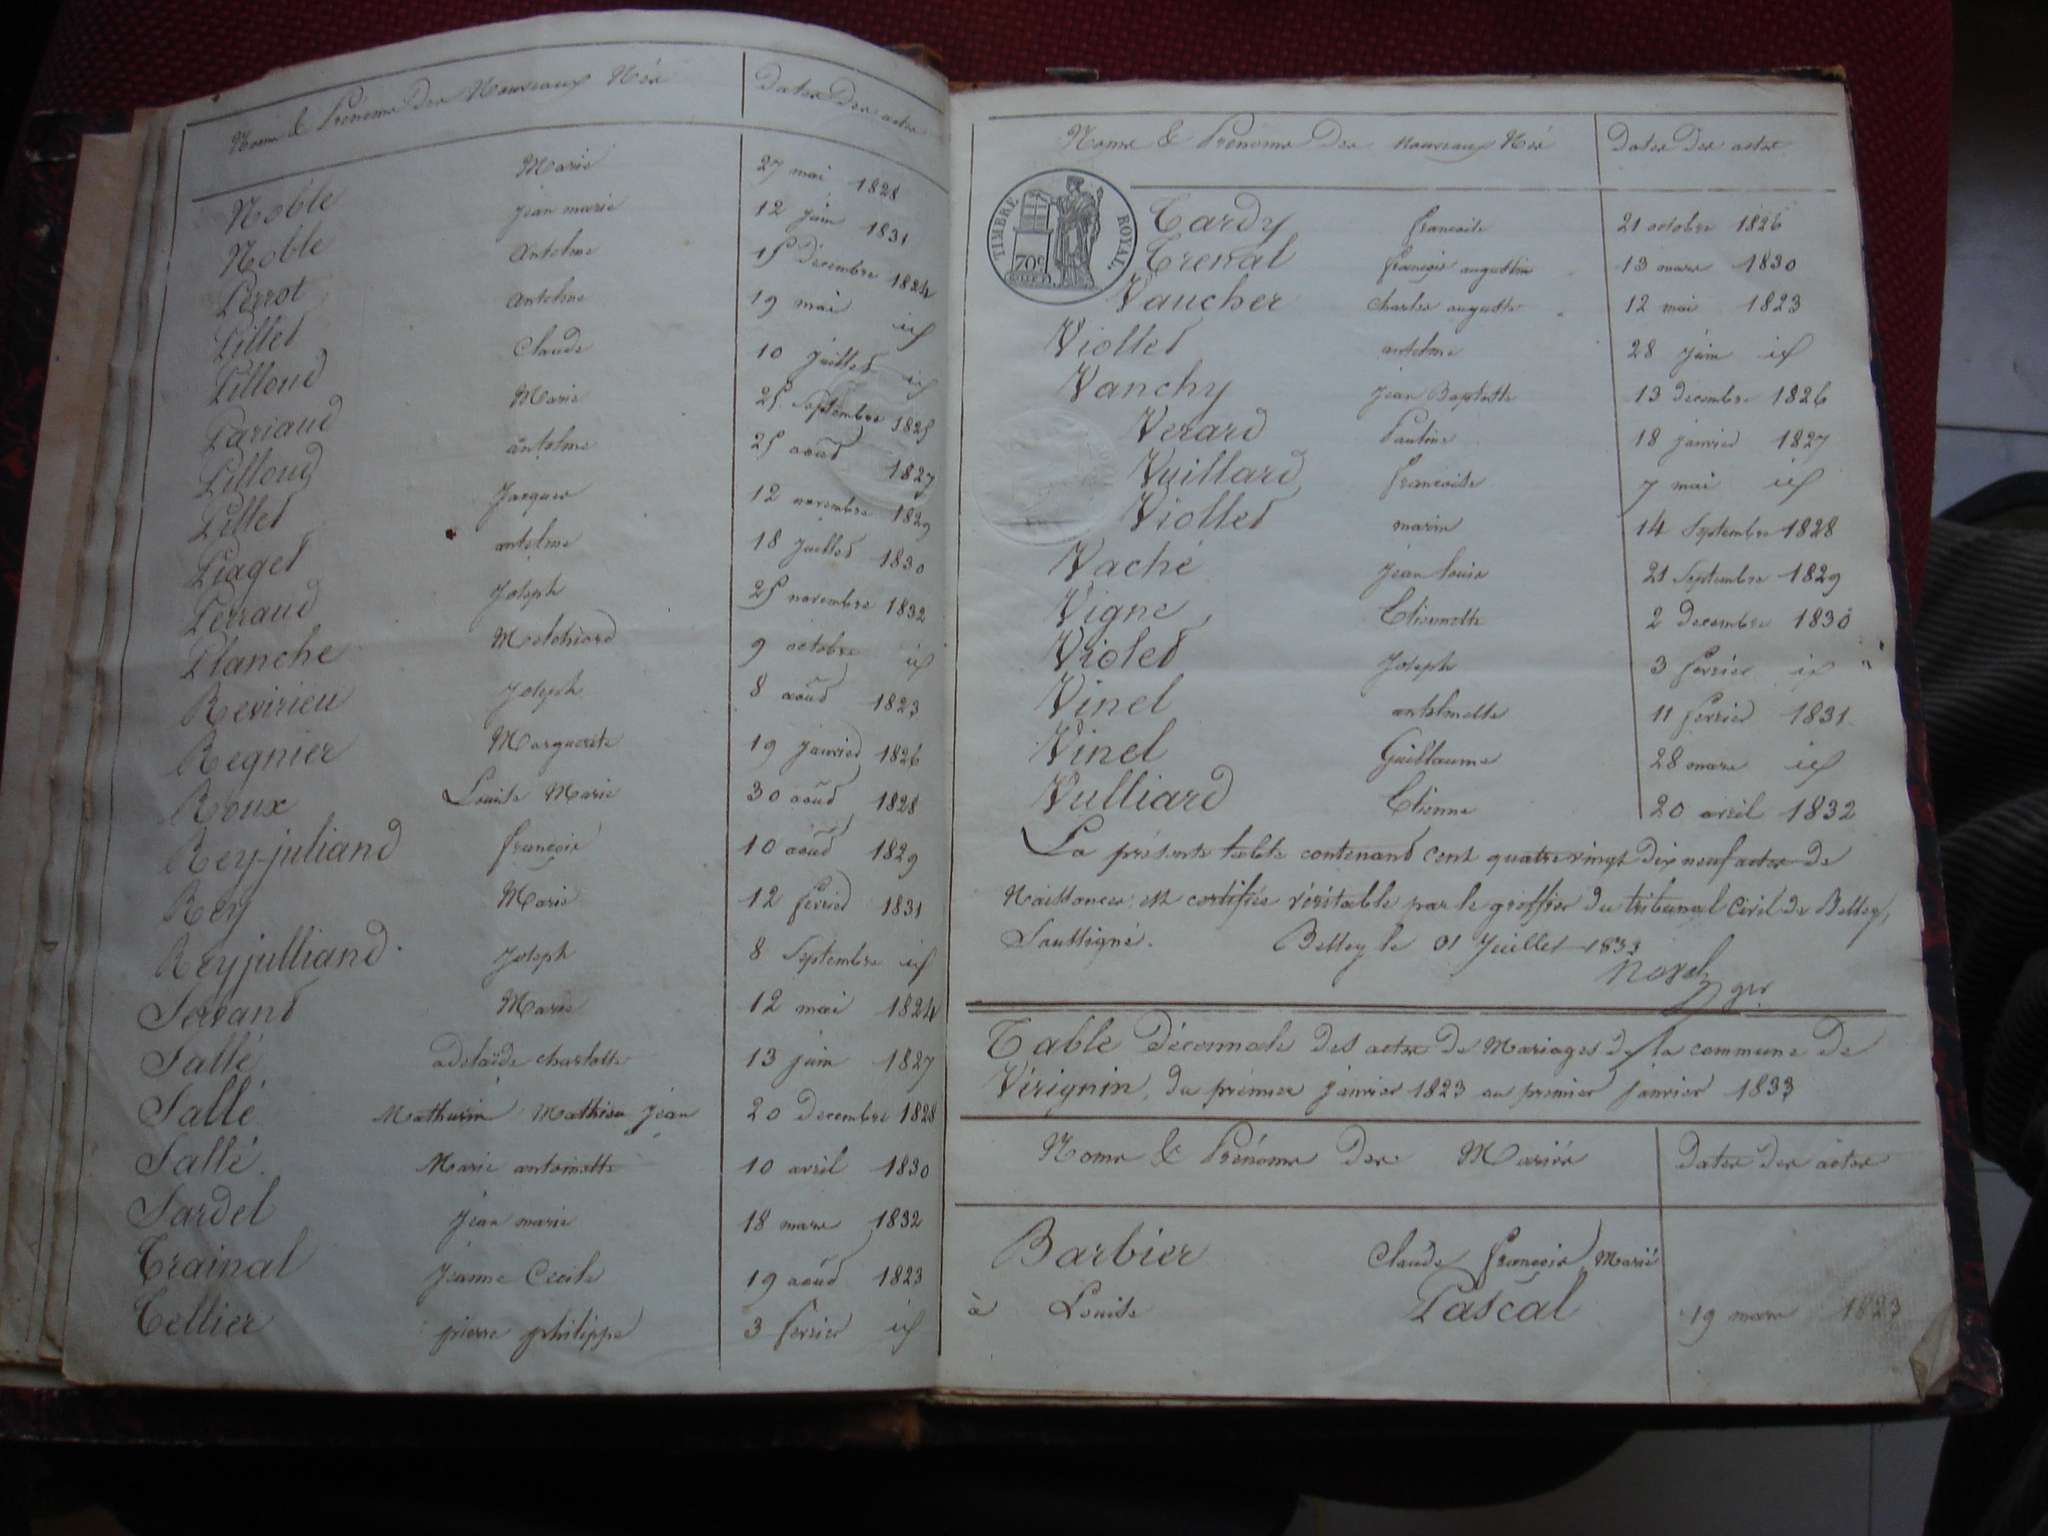 Noms & Prénoms des Nouveaux Nés Dates des actes
Noble Marie 27 mai 1828
Noble jean marie 12 juin 1831
Perrot Antelme 15 Décembre 1824
Pillet Antelme 19 mai id
Pilloud Claude 10 juillet id
Pariaud Marie 25 Septembre 1825
Pilloud antelme 25 aoud 1827
Pillet Jacques 12 novembre 1829
Piaget antelme 18 juillet 1830
Perraud Joseph 25 novembre 1832
Planche Melchiord 9 octobre id
Revirieu Joseph 8 aoud 1823
Regnier Marguerite 19 janvied 1826
Roux Louise Marie 30 aoud 1828
Rey-juliand françois 10 aoud 1829
Rey Marie 12 févried 1831
Reyjulliand Joseph 8 Septembre id
Servand Marie 12 mai 1824
Sallé adelaïde charlotte 13 juin 1827
Sallé Mathurin Mathieu jean 20 Decembre 1828
Sallé Marie antoinette 10 avril 1830
Sardel jean marie 18 mars 1832
Trainal jeanne Cecile 19 aoud 1823
Tellier pierre philippe 3 fevrier id
Noms & Prénoms des nouveaux Nés Dates des actes
TIMBRE ROYAL.
70c
Tardy francoise 21 octobre 1826
Trenal françois augustin 13 mars 1830
Vaucher charles auguste 12 mai 1823
Viollet antelme 28 juin id
Vanchy jean Baptiste 13 decembre 1826
Verard Pauline 18 janvied 1827
Vuillard francoise 7 mai id
Viollet marin 14 Septembre 1828
Vaché jean louis 21 Septembre 1829
Vigne Etiennette 2 Decembre 1830
Violet Joseph 3 fevrier id
Vinel antelmette 11 fevried 1831
Vinel Guillaume 28 mars id
Vulliard Etienne 20 avril 1832
La présente table contenand cent quatre vingt dix neuf actes de
Naissances est certifiée véritable par le greffier du tribunal Civil de Belley,
Soussigné. Belley le 01 Juillet 1833
Table Décennale des actes de Mariages de la commune de
Virignin, du premier janvier 1823 au premier janvier 1833
Noms & Prénoms des Mariés Dates des actes
Barbier Claude françois Marié
à Louise Pascal 19 mars 1823